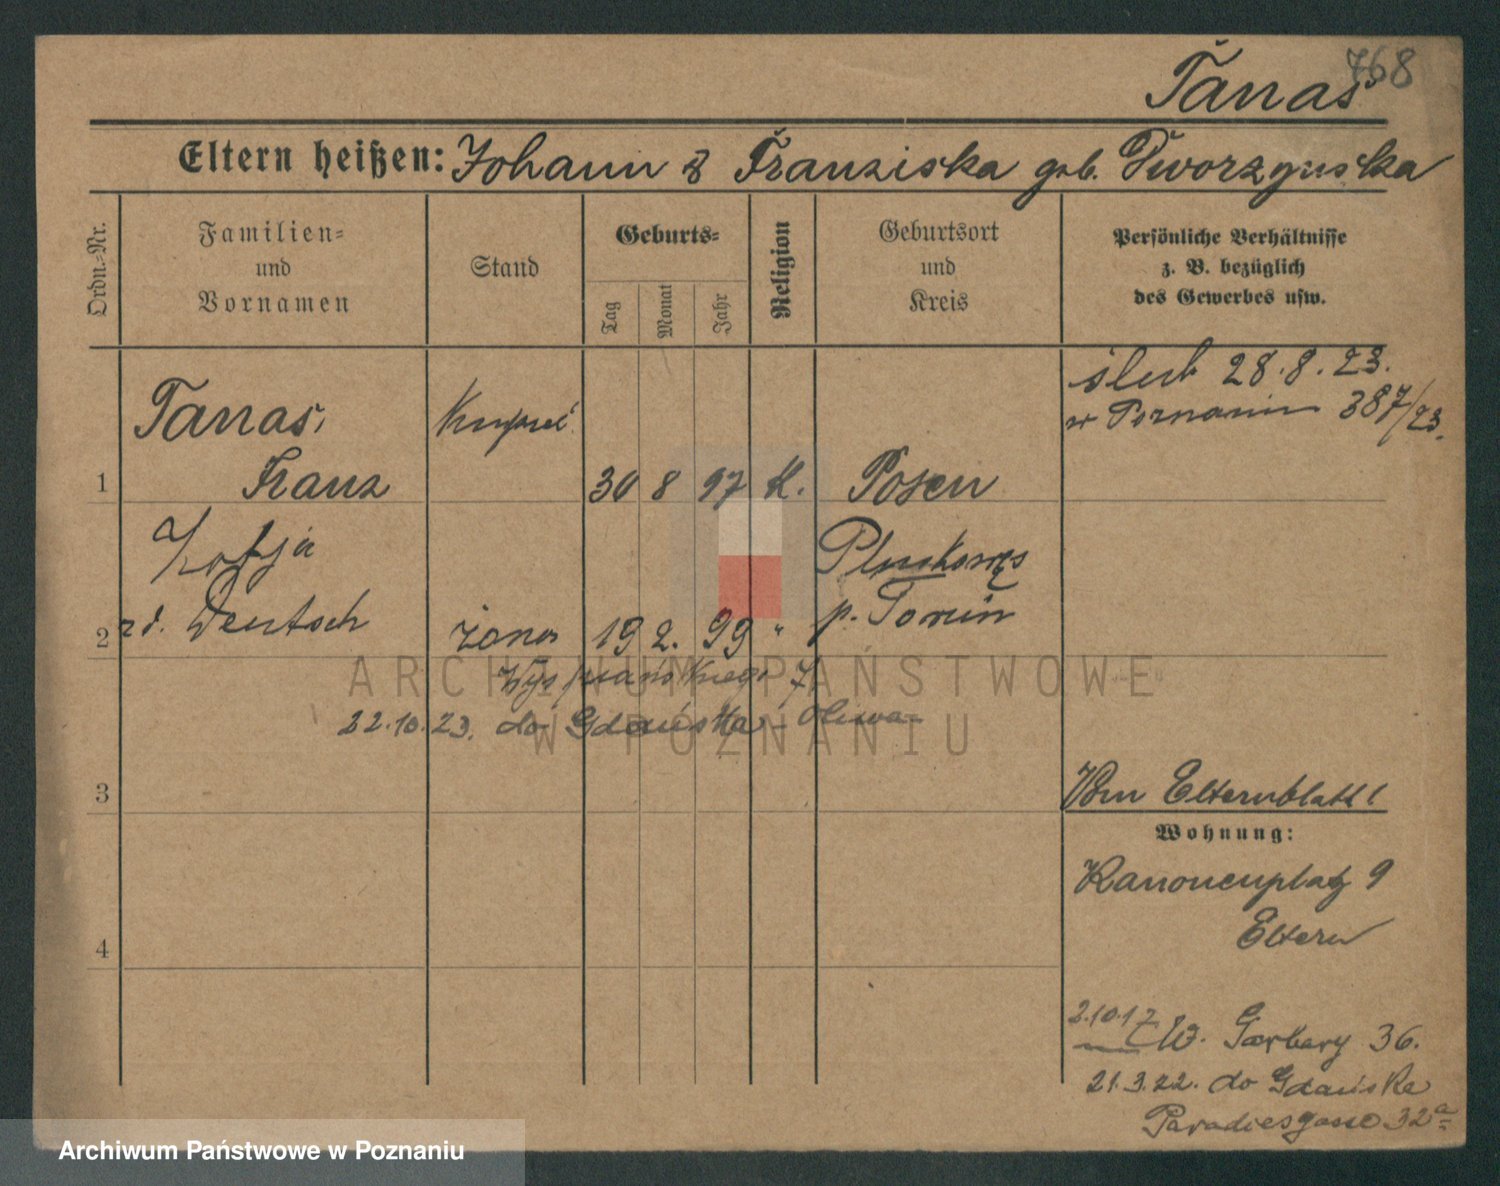 768
Tanaś
Eltern heißen: Johann & Franziska geb. Tworzyuska
Ordn.-Nr.
Familien-
und
Vornamen
Stand
Geburts-
Tag
Monat
Jahr
Religion
Geburtsort
und
Kreis
Persönliche Verhältnisse
z. B. bezüglich
des Gewerbes usw.
ślub 28.8.23.
w Poznaniu 387/23.
Tanaś,
Kupiec
1 Franz 30 8 97 K. Posen
Zofja
Pluskowęs
2 zd. Deutsch żona 19 2. 99 " p. Toruń
Wyspiańskiego 7
22.10.23. do Gdańska - Oliwa
3
Vom Elternblatt!
Wohnung:
Kanonenplatz 9
Eltern
4
2.10.17 W. Garbary 36.
21.3.22. do Gdańska
Paradiesgasse 32a
ARCHIWUM PAŃSTWOWE
W POZNANIU
Archiwum Państwowe w Poznaniu